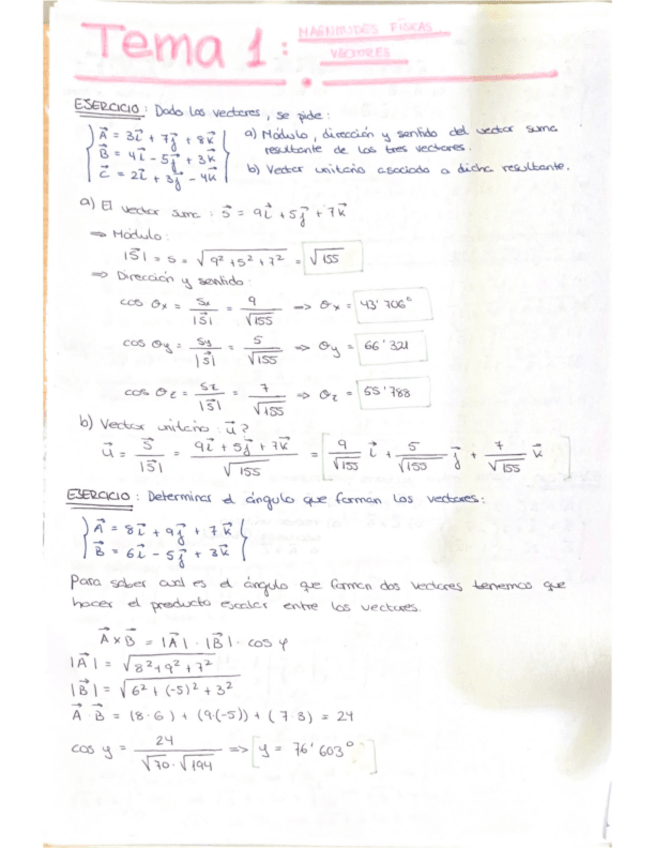 Tema 1: MAGNITUDES FÍSICAS
VECTORES
EJERCICIO: Dado los vectores, se pide:
A⃗ = 3i⃗ + 7j⃗ + 8k⃗
B⃗ = 4i⃗ - 5j⃗ + 3k⃗
C⃗ = 2i⃗ + 3j⃗ - 4k⃗
a) Módulo, dirección y sentido del vector suma
resultante de los tres vectores.
b) Vector unitario asociado a dicha resultante.
a) El vector suma: S⃗ = 9i⃗ + 5j⃗ + 7k⃗
⇒ Módulo:
|S⃗| = s = √9² + 5² + 7² = √155
⇒ Dirección y sentido:
cos θx = Sx / |S⃗| = 9 / √155 ⇒ θx = 43'706°
cos θy = Sy / |S⃗| = 5 / √155 ⇒ θy = 66'321
cos θz = Sz / |S⃗| = 7 / √155 ⇒ θz = 55'788
b) Vector unitario: u⃗?
u⃗ = S⃗ / |S⃗| = 9i⃗ + 5j⃗ + 7k⃗ / √155 = [9/√155 i⃗ + 5/√155 j⃗ + 7/√155 k⃗]
EJERCICIO: Determinar el ángulo que forman los vectores:
A⃗ = 8i⃗ + 9j⃗ + 7k⃗
B⃗ = 6i⃗ - 5j⃗ + 3k⃗
Para saber cual es el ángulo que forman dos vectores tenemos que
hacer el producto escalar entre los vectores.
A⃗ x B⃗ = |A⃗| · |B⃗| · cos φ
|A⃗| = √8² + 9² + 7²
|B⃗| = √6² + (-5)² + 3²
A⃗ · B⃗ = (8·6) + (9·(-5)) + (7·3) = 24
cos y = 24 / √70 · √194 ⇒ [y = 76'603°]